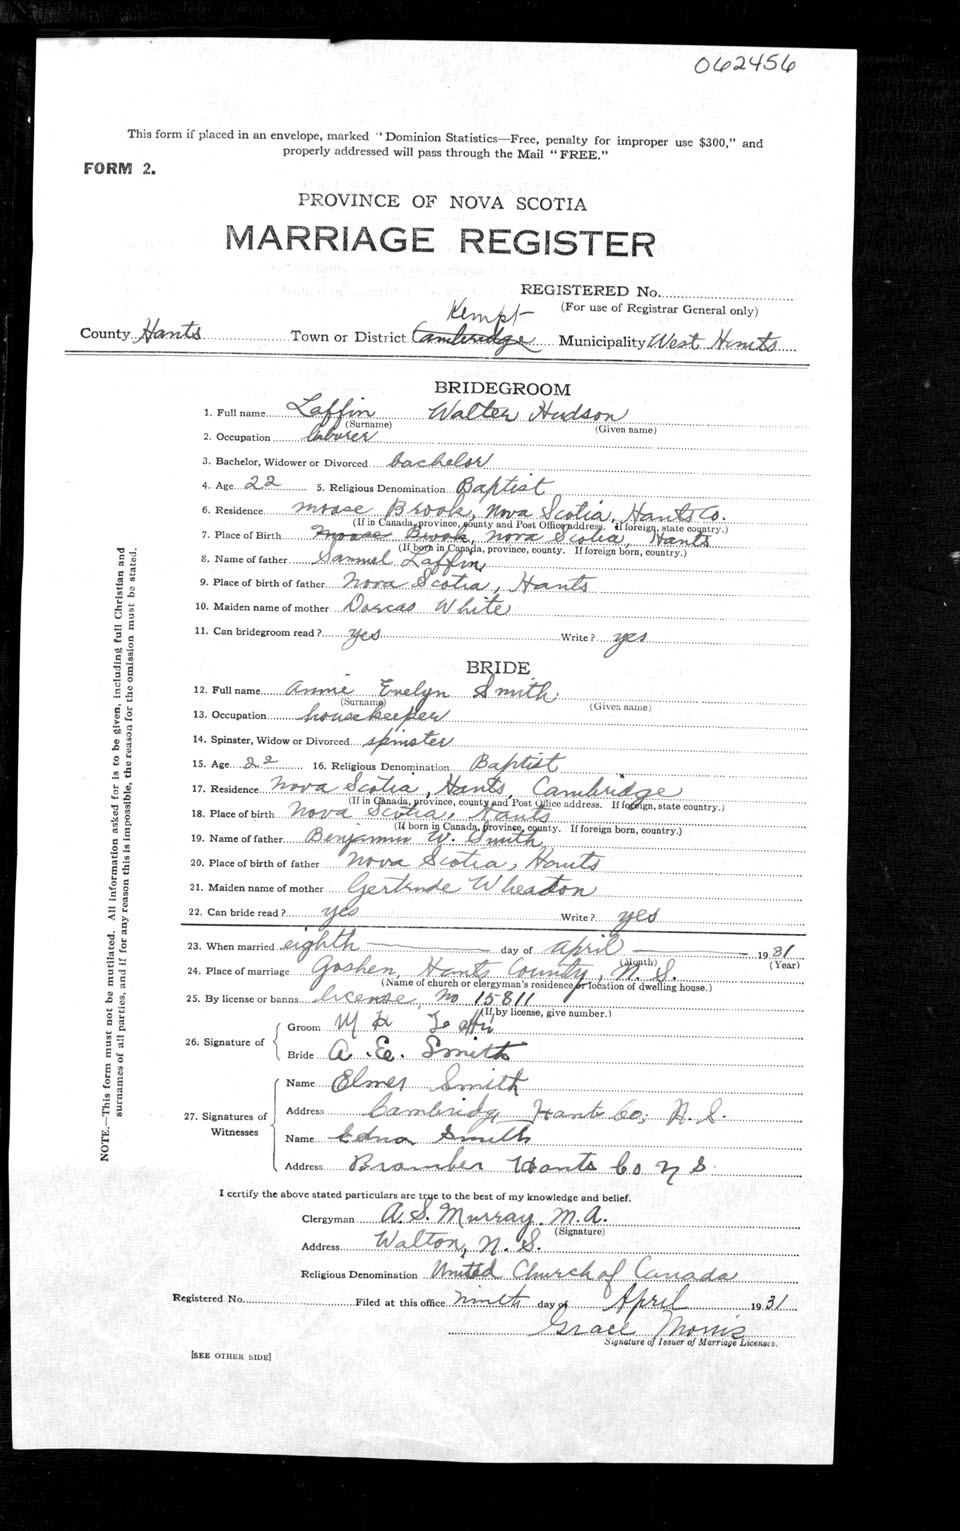 062456
This form if placed in an envelope, marked "Dominion Statistics—Free, penalty for improper use $300," and
properly addressed will pass through the Mail "FREE."
FORM 2.
PROVINCE OF NOVA SCOTIA
MARRIAGE REGISTER
REGISTERED No.
(For use of Registrar General only)
Kempt
County Hants Town or District Cambridge Municipality West Hants
BRIDEGROOM
1. Full name Laffin Walter Hudson
(Surname) (Given name)
2. Occupation laborer
3. Bachelor, Widower or Divorced bachelor
4. Age 22 5. Religious Denomination Baptist
6. Residence Moose Brook, Nova Scotia, Hants Co.
(If in Canada, province, county and Post Office address. If foreign, state country.)
7. Place of Birth Moose Brook, Nova Scotia, Hants
(If born in Canada, province, county. If foreign born, country.)
8. Name of father Samuel Laffin
9. Place of birth of father Nova Scotia, Hants
10. Maiden name of mother Dorcas White
11. Can bridegroom read? yes Write? yes
BRIDE
12. Full name Annie Evelyn Smith
(Surname) (Given name)
13. Occupation housekeeper
14. Spinster, Widow or Divorced spinster
15. Age 22 16. Religious Denomination Baptist
17. Residence Nova Scotia, Hants, Cambridge
(If in Canada, province, county and Post Office address. If foreign, state country.)
18. Place of birth Nova Scotia, Hants
(If born in Canada, province, county. If foreign born, country.)
19. Name of father Benjamin W. Smith
20. Place of birth of father Nova Scotia, Hants
21. Maiden name of mother Gertrude Wheadon
22. Can bride read? yes Write? yes
23. When married eighth day of April 1931
(Month) (Year)
24. Place of marriage Goshen, Hants County, N. S.
(Name of church or clergyman's residence or location of dwelling house.)
25. By license or banns license no 15811
(If by license, give number.)
26. Signature of
Groom
Bride A. E. Smith
27. Signatures of Witnesses
Name Elmer Smith
Address Cambridge Hants Co; N. S.
Name Edna Smith
Address Bramber Hants Co N S.
I certify the above stated particulars are true to the best of my knowledge and belief.
Clergyman A. S. Murray, M.A.
(Signature)
Address Walton, N. S.
Religious Denomination United Church of Canada
Registered No. Filed at this office ninth day of April 1931
Grace Morris
Signature of Issuer of Marriage Licenses.
[SEE OTHER SIDE]
NOTE.—This form must not be mutilated. All information asked for is to be given, including full Christian and
surnames of all parties, and if for any reason this is impossible, the reason for the omission must be stated.